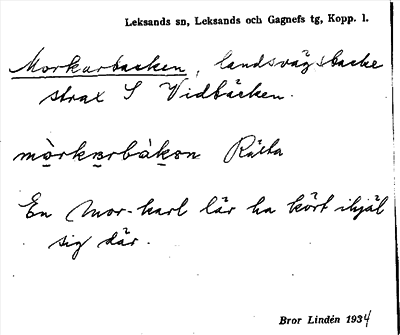 Leksands sn, Leksands och Gagnefs tg, Kopp. l.
Morkarbacken, landsvägsbacke
strax S Vidbäcken.
mòrkarbàkən Rälta
En Mor-karl lär ha kört ihjäl
sig där.
Bror Lindén 1934